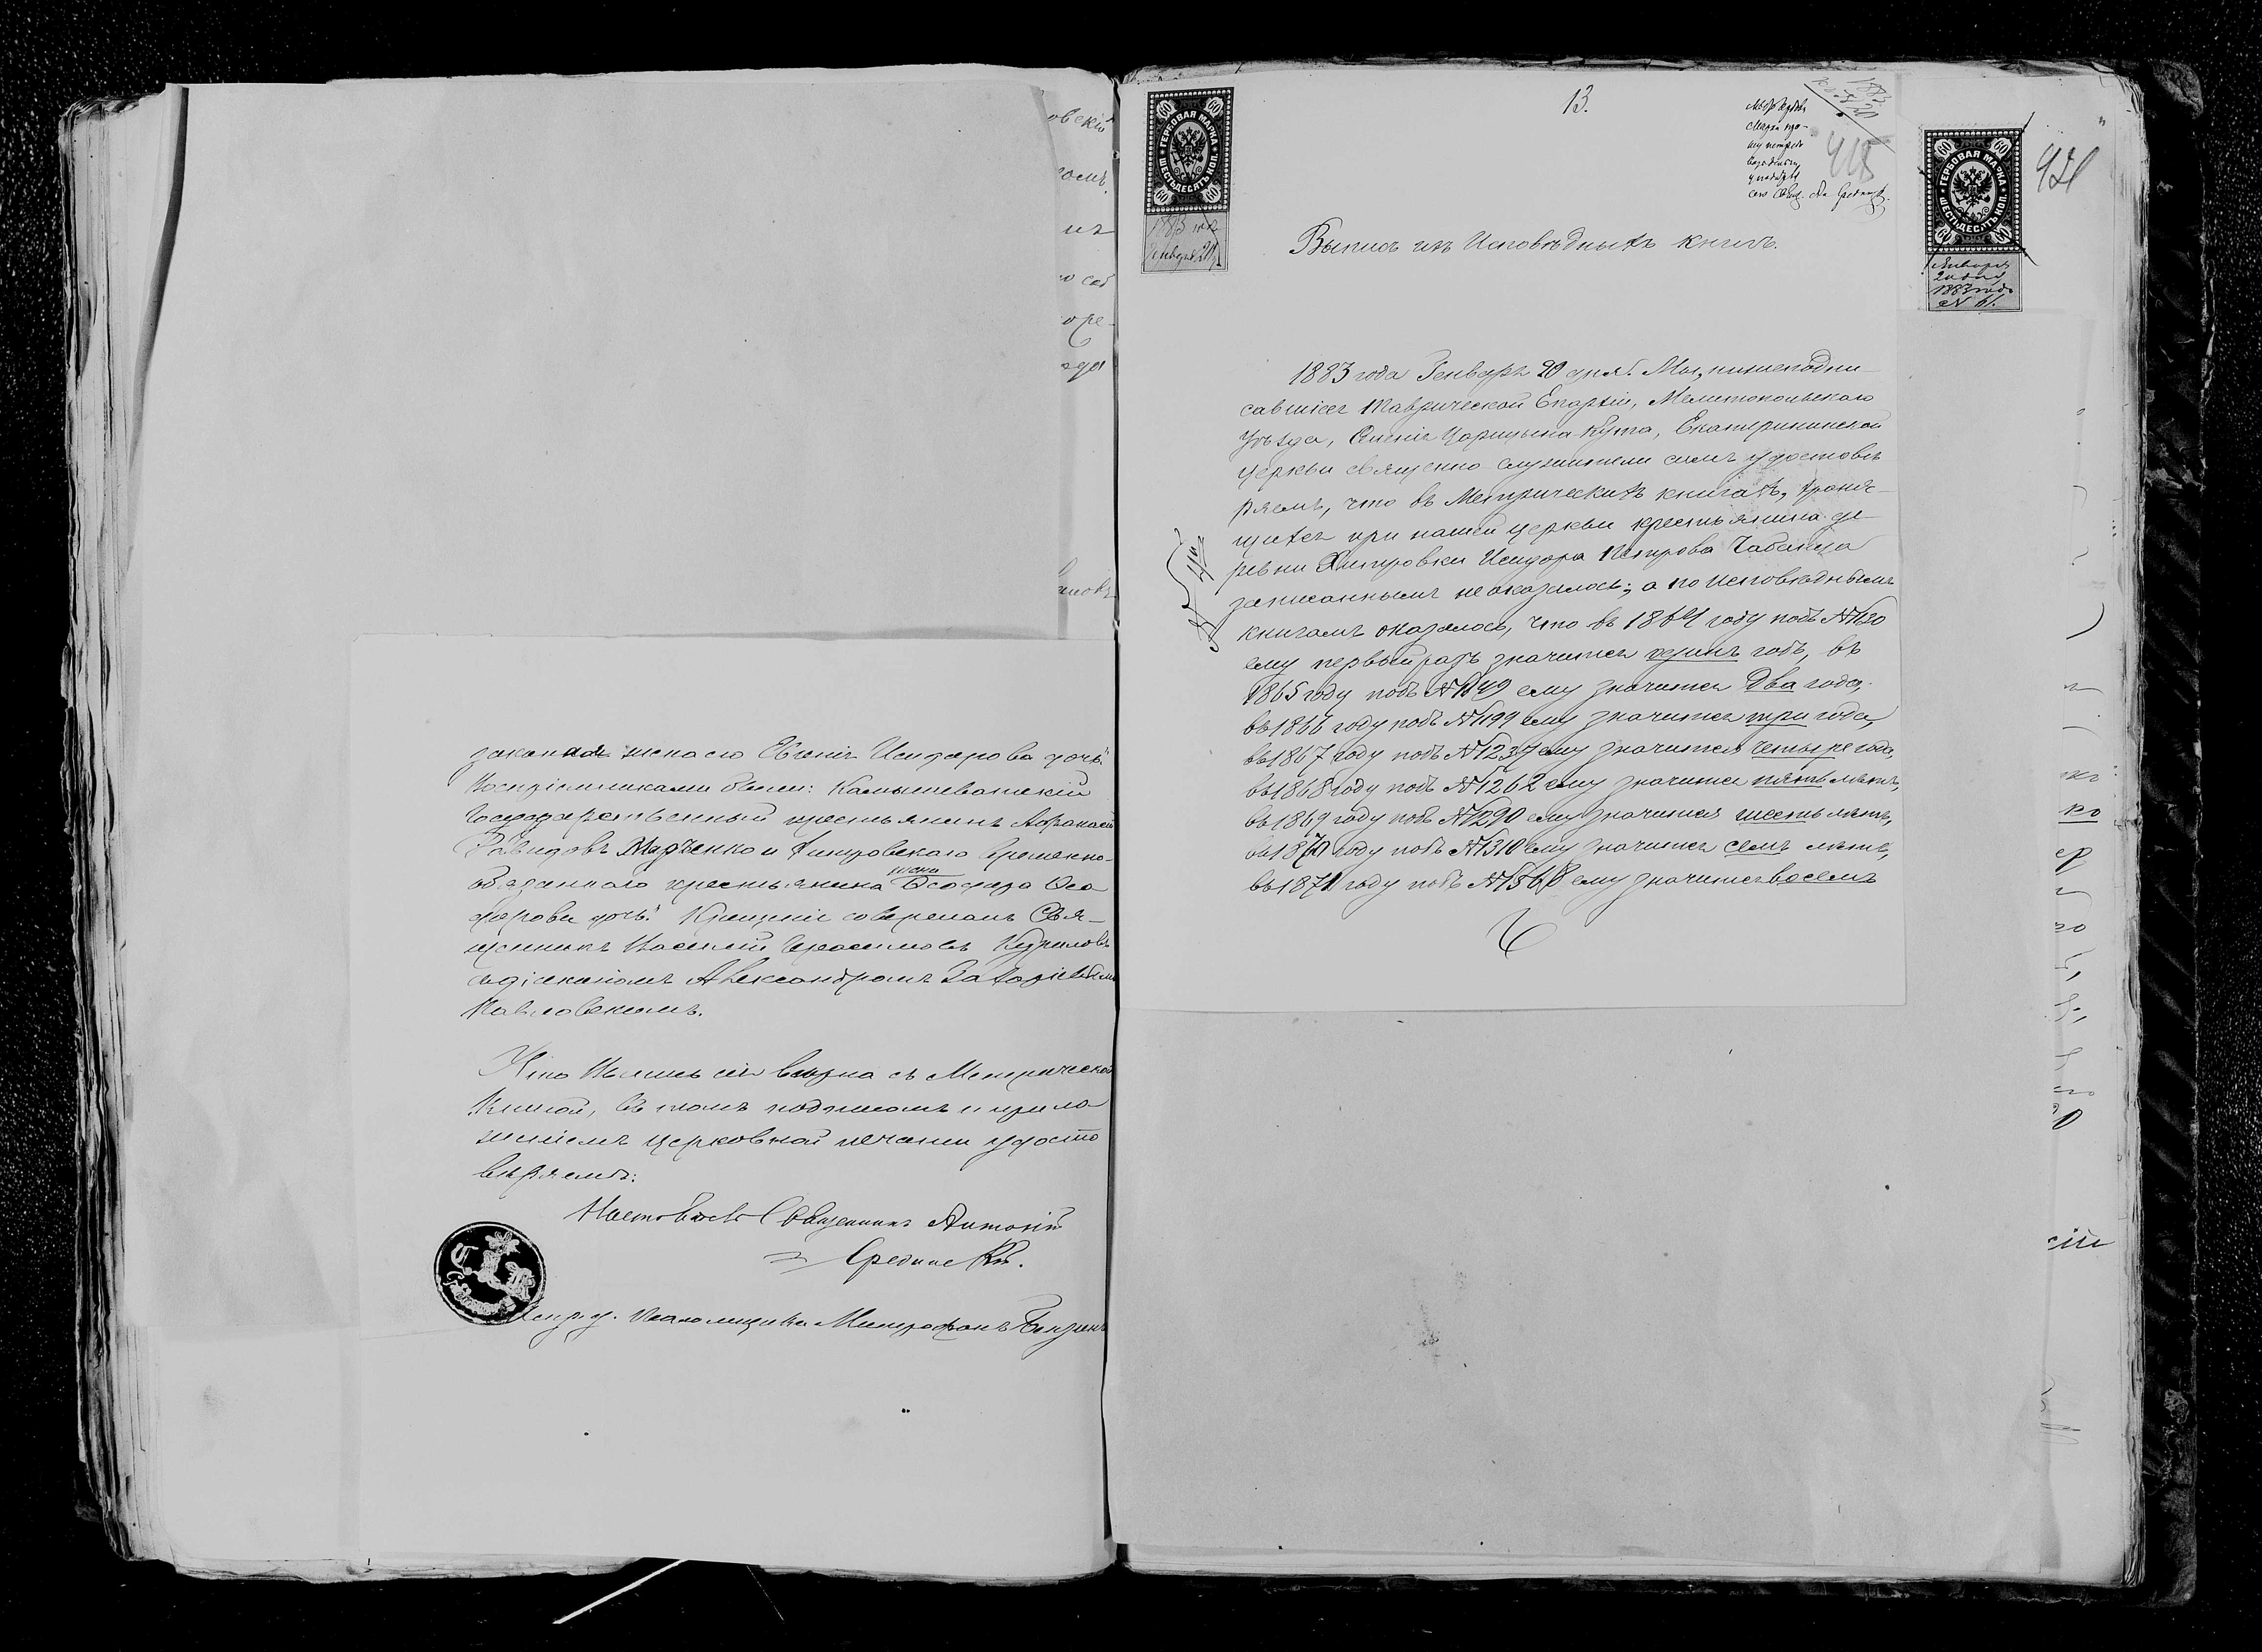 овскій
законная жена его Евгенія Исидорова дочь.
Воспріемниками были: Камышеватскій
Государственный крестьянинъ Афанасій
Давидовъ Марченко и Димитровскаго временно-
обязаннаго крестьянина Ѳеодора Ѳео
жена
дорова дочь. Крещеніе совершалъ Свя-
щенникъ Василій Герасимовъ Кириловъ
съ діакономъ Александромъ
Павловскимъ.
Что Выпись сія вѣрна съ Метрической
Книгой, въ томъ подписомъ и прило
женіемъ церковной печати удосто
вѣряемъ:
Священникъ Антоній
Срединскій.
Псаломщика Митрофанъ
13.
418
421
ГЕРБОВАЯ МАРКА
ШЕСТЬДЕСЯТЪ КОП.
60 60 60 60
1883 года
Января 20
ГЕРБОВАЯ МАРКА
ШЕСТЬДЕСЯТЪ КОП.
60 60 60 60
Января
20 дня
1883 года
№ 61.
Выпись изъ Исповѣдныхъ книгъ.
1883 года Генваря 20 дня. Мы, нижеподпи
савшіеся Таврической Епархіи, Мелитопольскаго
Уѣзда, Селенія Царицына-Кута, Екатерининской
церкви священно служители симъ удостовѣ
ряемъ, что въ Метрическихъ книгахъ, храня-
щихся при нашей церкви крестьянина де-
ревни Димитровки Исидора Петрова Чабанца
записаннымъ не оказалось; а по исповѣднымъ
книгамъ оказалось, что въ 1864 году подъ №1120
ему первый разъ значится одинъ годъ, въ
1865 году подъ №1149 ему значится два года,
въ 1866 году подъ №1199 ему значится три года,
въ 1867 году подъ №1237 ему значится четыре года,
въ 1868 году подъ №1262 ему значится пять лѣтъ,
въ 1869 году подъ №1290 ему значится шесть лѣтъ,
въ 1870 году подъ №1310 ему значится семь лѣтъ,
въ 1871 году подъ №1368 ему значится восемь